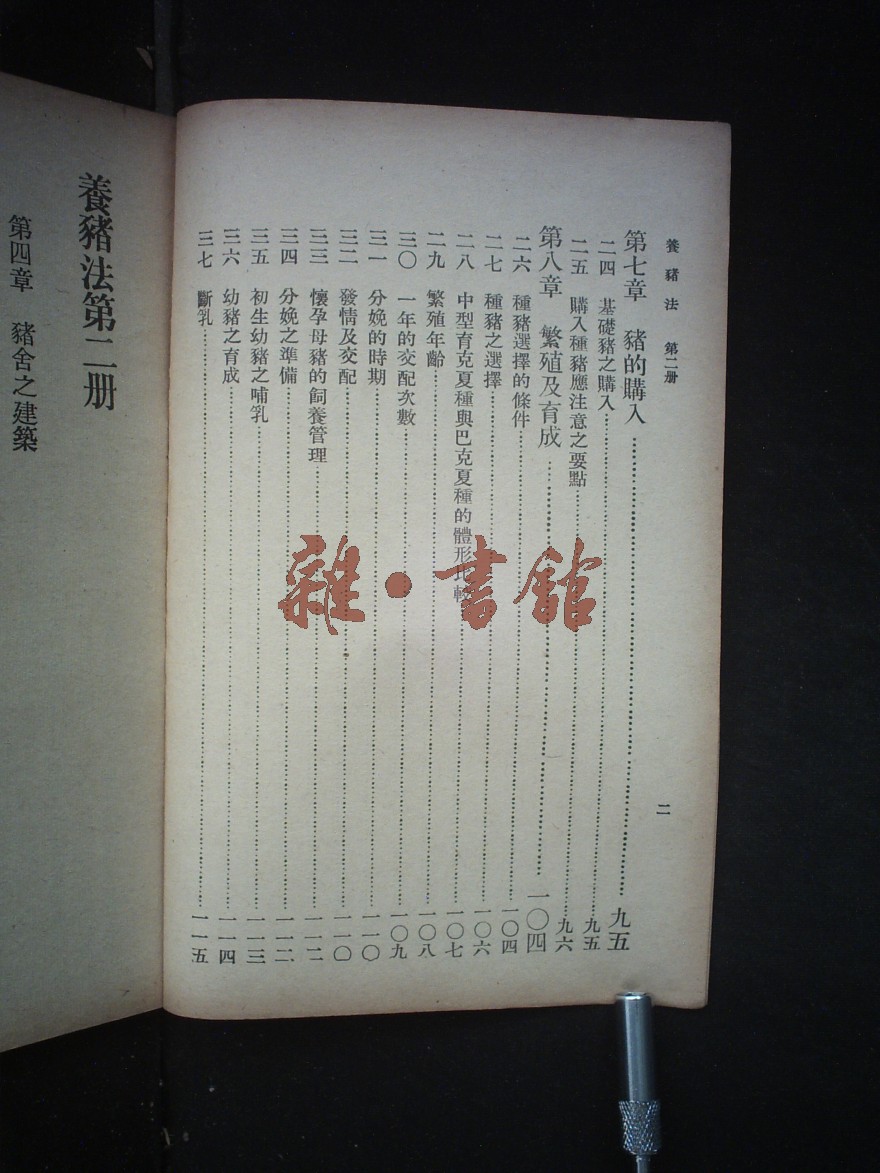 養豬法 第二册
二
第七章 豬的購入 九五
二四 基礎豬之購入 九五
二五 購入種豬應注意之要點 九六
第八章 繁殖及育成 一〇四
二六 種豬選擇的條件 一〇四
二七 種豬之選擇 一〇六
二八 中型育克夏種與巴克夏種的體形比較 一〇七
二九 繁殖年齡 一〇八
三〇 一年的交配次數 一〇九
三一 分娩的時期 一一〇
三二 發情及交配 一一〇
三三 懷孕母豬的飼養管理 一一二
三四 分娩之準備 一一二
三五 初生幼豬之哺乳 一一三
三六 幼豬之育成 一一四
三七 斷乳 一一五
養豬法第二册
第四章 豬舍之建築
雜·書館